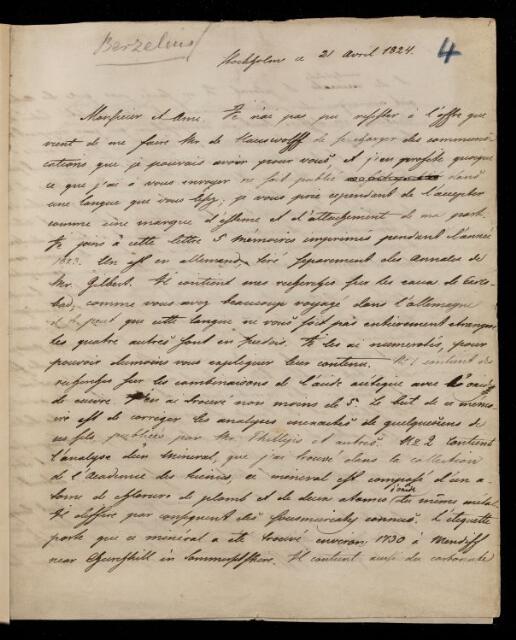 Berzelius
4
Stockholm ce 21 Avril 1824.
Monsieur et Ami. Je n'ai pas pu resister à l'offre que
vient de me faire Mr. de Hauswolff de se charger des communi-
cations que je pourais avoir pour vous, et j'en profite quoique
ce que j'ai à vous envoyer ne soit publié dans
une langue que vous lisez, je vous prie cependant de l'accepter
comme une marque d'estime et d'attachement de ma part.
Je joins à cette lettre 5 mémoires imprimés pendant l'année
1823. Un est en allemand, tiré separement des Annales de
Mr. Gilbert. Il contient mes recherches sur les eaux de Carls-
bad, comme vous avez beaucoup voyagé dans l'allemagne
il se peut que cette langue ne vous soit pas entierement etrangere,
les quatre autres sont en suedois. Je les ai numerotés, pour
pouvoir dumoins vous expliquer leur contenu. No 1 contient des
recherches sur les combinaisons de l'acide acetique avec
de cuivre. J'en ai trouvé non moins de 5. Le but de ce memoi-
re est de corriger les analyses inexactes de quelques uns de
ces sels, publiées par Mr. Phillips et autres. No 2 contient
l'analyse d'un mineral, que j'ai trouvé dans la collection
de l'Academie des Sciences, ce mineral est composé d'un a-
tome de chlorure de plomb et de deux atomes d'oxide du même metal.
Il differe par consequent des sousmuriates connus. L'etiquette
porte que ce mineral a eté trouvé environ 1730 à Mendiff
near Churchill in Sommersetshire. Il contient aussi du carbonate